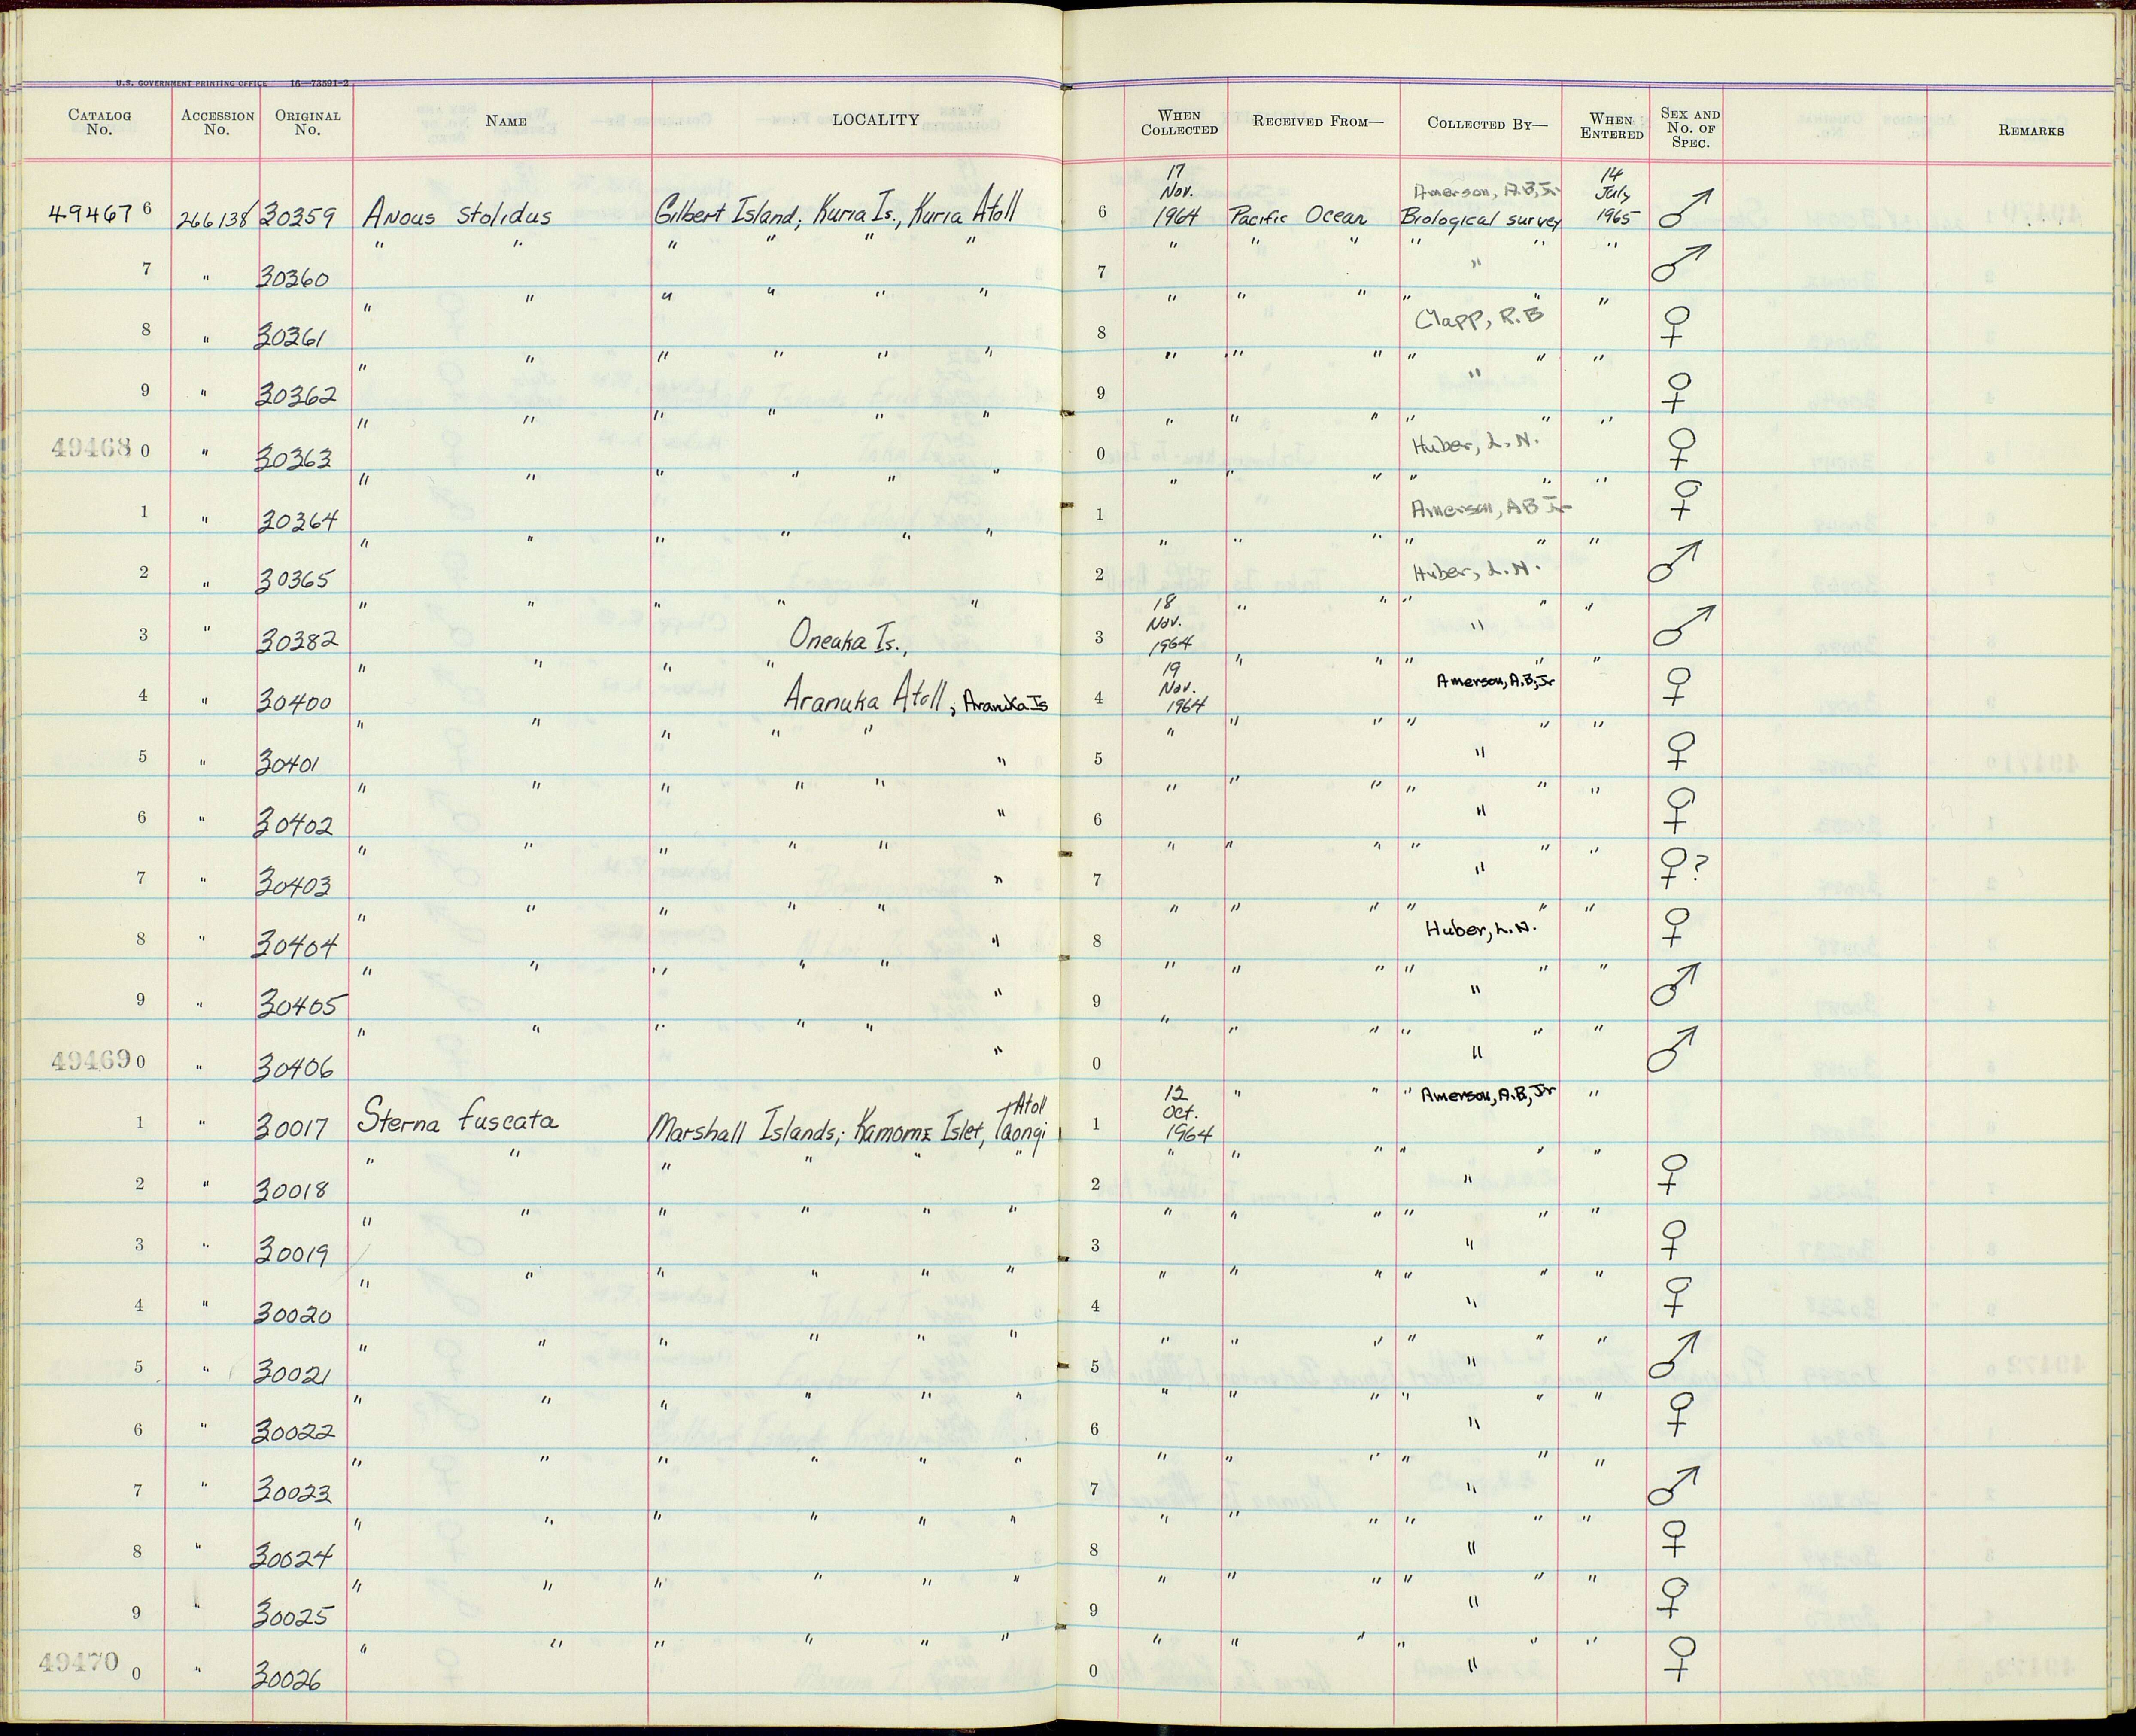 U.S. GOVERNMENT PRINTING OFFICE 16—73591-2
CATALOG No. ACCESSION No. ORIGINAL No. NAME LOCALITY WHEN COLLECTED RECEIVED FROM— COLLECTED BY— WHEN ENTERED SEX AND No. OF SPEC. REMARKS
49467 6 266138 30359 Anous stolidus Gilbert Island; Kuria Is., Kuria Atoll 6 17 Nov. 1964 Pacific Ocean Biological survey Amerson, A.B, Jr. 14 July 1965 ♂
7 " 30360 " " " " " " 7 " " " " " " " ♂
8 " 30361 " " " " " " 8 " " " " " Clapp, R.B " ♀
9 " 30362 " " " " " " 9 " " " " " " " ♀
49468 0 " 30363 " " " " " " 0 " " " " " Huber, L.N. " ♀
1 " 30364 " " " " " " 1 " " " " " Amerson, AB Jr " ♀
2 " 30365 " " " " " " 2 " " " " " Huber, L.N. " ♂
3 " 30382 " " " " Oneaka Is., " 3 18 Nov. 1964 " " " " " " ♂
4 " 30400 " " " " Aranuka Atoll, Aranuka Is 4 19 Nov. 1964 " " " " Amerson, A.B, Jr " ♀
5 " 30401 " " " " " " 5 " " " " " " " ♀
6 " 30402 " " " " " " 6 " " " " " " " ♀
7 " 30403 " " " " " " 7 " " " " " " " ♀?
8 " 30404 " " " " " " 8 " " " " " Huber, L.N. " ♀
9 " 30405 " " " " " " 9 " " " " " " " ♂
49469 0 " 30406 " " " " " " 0 " " " " " " " ♂
1 " 30017 Sterna fuscata Marshall Islands; Kamome Islet, Taongi Atoll 1 12 Oct. 1964 " " " Amerson, A.B, Jr "
2 " 30018 " " " " " " 2 " " " " " " " ♀
3 " 30019 " " " " " " 3 " " " " " " " ♀
4 " 30020 " " " " " " 4 " " " " " " " ♀
5 " 30021 " " " " " " 5 " " " " " " " ♂
6 " 30022 " " " " " " 6 " " " " " " " ♀
7 " 30023 " " " " " " 7 " " " " " " " ♂
8 " 30024 " " " " " " 8 " " " " " " " ♀
9 " 30025 " " " " " " 9 " " " " " " " ♀
49470 0 " 30026 " " " " " " 0 " " " " " " " ♀